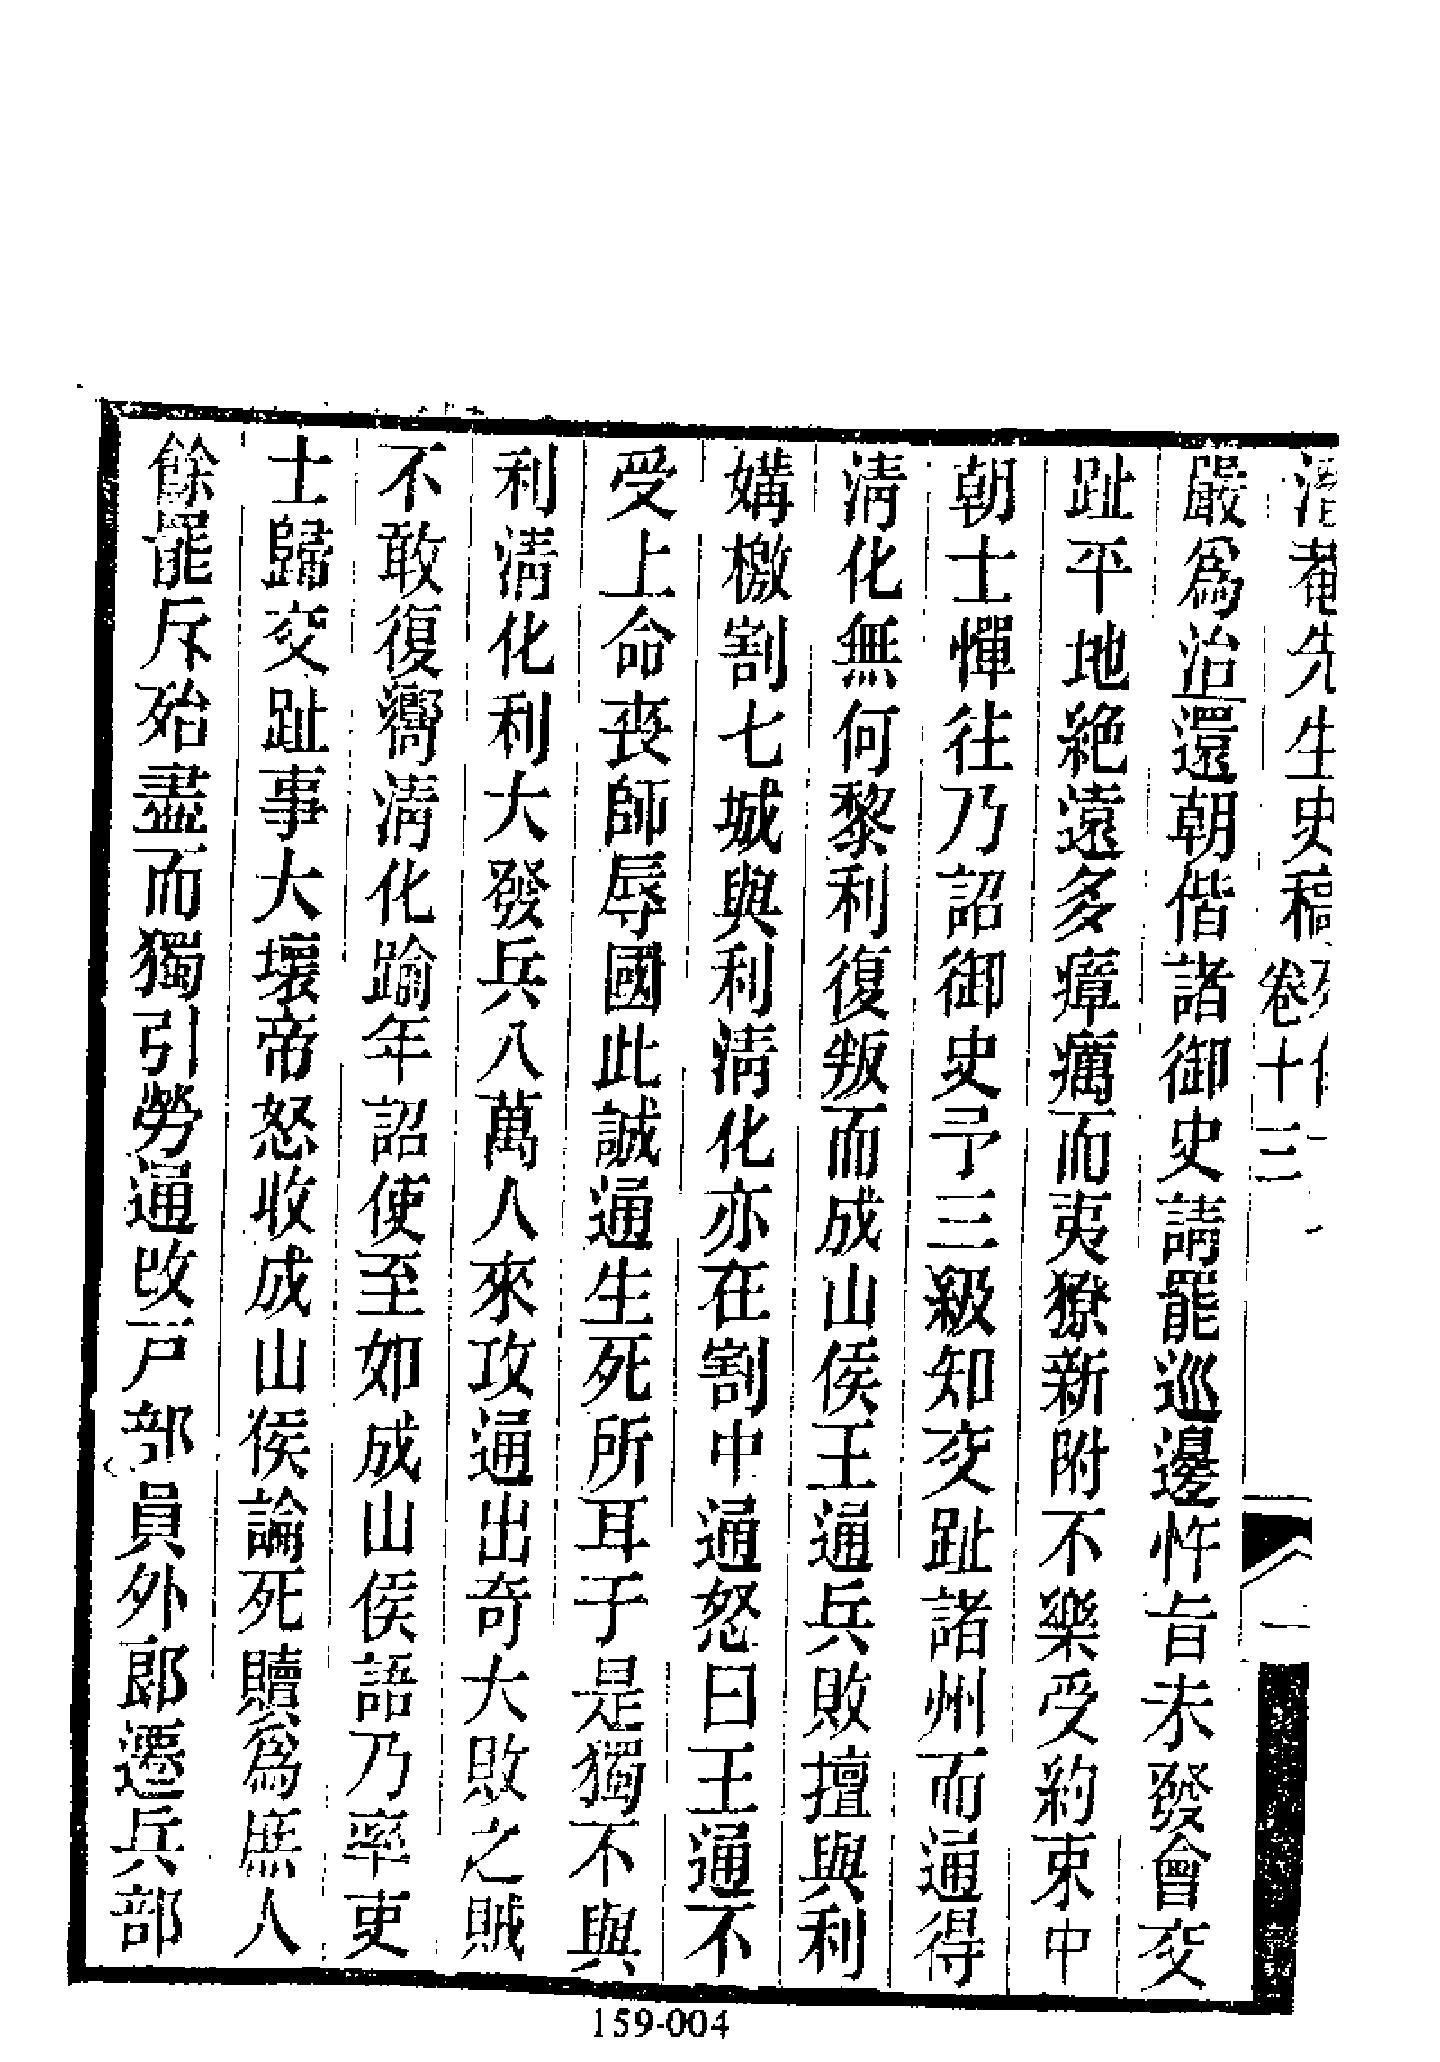 潛菴先生史稿 卷十三
嚴爲治還朝偕諸御史請罷巡邊忤旨未發會交
趾平地絶遠多瘴癘而夷獠新附不樂受約束中
朝士憚往乃詔御史予三級知交趾諸州而通得
淸化無何黎利復叛而成山侯王通兵敗擅與利
媾檄割七城與利淸化亦在割中通怒曰王通不
受上命丧師辱國此誠通生死所耳于是獨不與
利淸化利大發兵八萬人來攻通出奇大敗之賊
不敢復嚮淸化踰年詔使至如成山侯語乃率吏
士歸交趾事大壞帝怒收成山侯論死贖爲庶人
餘罷斥殆盡而獨引勞通改戸部員外郎遷兵部
一
159-004